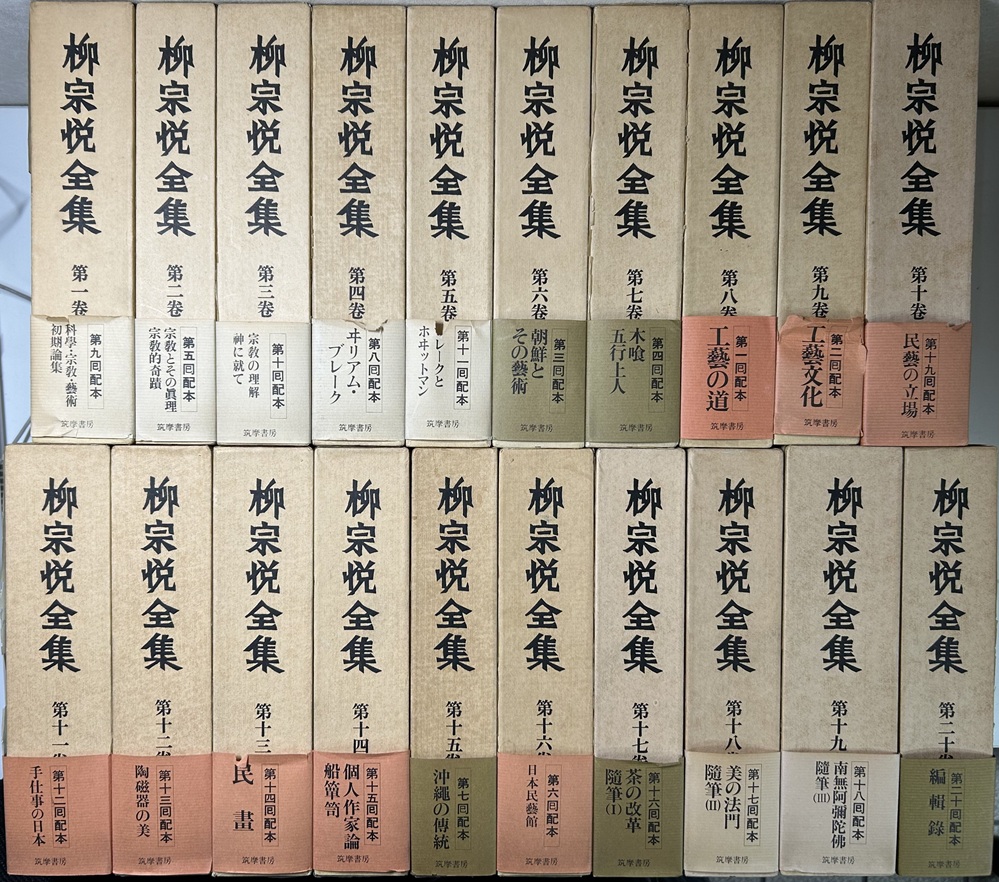 柳宗悦全集
第一卷
第九回配本
科學・宗教・藝術
初期論集
筑摩書房
柳宗悦全集
第二卷
第五回配本
宗教とその眞理
宗教的奇蹟
筑摩書房
柳宗悦全集
第三卷
第十回配本
宗教の理解
神に就て
筑摩書房
柳宗悦全集
第四卷
第八回配本
ヰリアム・
ブレーク
筑摩書房
柳宗悦全集
第五卷
第十一回配本
レークと
ホヰットマン
筑摩書房
柳宗悦全集
第六卷
第三回配本
朝鮮と
その藝術
筑摩書房
柳宗悦全集
第七卷
第四回配本
木喰
五行上人
筑摩書房
柳宗悦全集
第八卷
第一回配本
工藝の道
筑摩書房
柳宗悦全集
第九卷
第二回配本
工藝文化
筑摩書房
柳宗悦全集
第十卷
第十九回配本
民藝の立場
筑摩書房
柳宗悦全集
第十一卷
第十二回配本
手仕事の日本
筑摩書房
柳宗悦全集
第十二卷
第十三回配本
陶磁器の美
筑摩書房
柳宗悦全集
第十三
第十四回配本
民畫
筑摩書房
柳宗悦全集
第十四
第十五回配本
個人作家論
船簞笥
筑摩書房
柳宗悦全集
第十五卷
第七回配本
沖繩の傳統
筑摩書房
柳宗悦全集
第十六卷
第六回配本
日本民藝館
筑摩書房
柳宗悦全集
第十七卷
第十六回配本
茶の改革
隨筆(I)
筑摩書房
柳宗悦全集
第十八卷
第十七回配本
美の法門
隨筆(II)
筑摩書房
柳宗悦全集
第十九
第十八回配本
南無阿彌陀佛
隨筆(III)
筑摩書房
柳宗悦全集
第二十卷
第二十回配本
編輯錄
筑摩書房